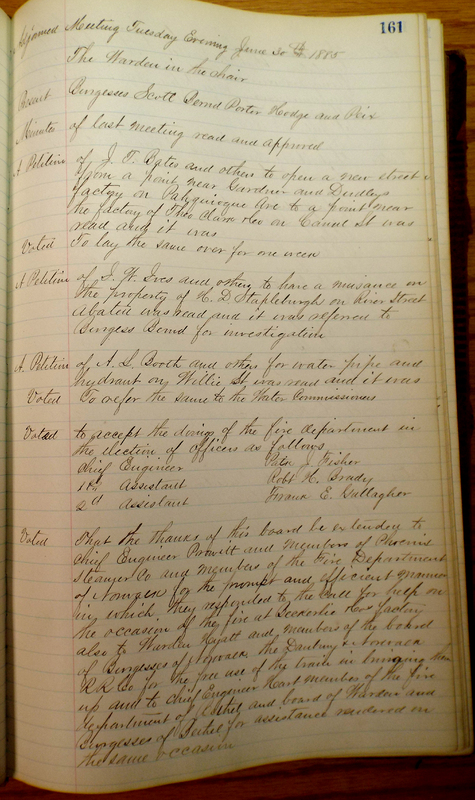 161
Adjourned Meeting Tuesday Evening June 30th 1885
The Warden in the chair
Present Burgesses Scott Bernd Porter Hodge and Rix
Minutes of last meeting read and approved
A Petition of J. T. Bates and others to open a new street
from a point near Gardner and Dudleys
factory on Pahquioque Ave to a point near
the factory of Theo Clark & Co on Canal St was
read and it was
Voted To lay the same over for one week
A Petition of J. W. Ives and others to have a nuisance on
the property of H. D Stapleburgh on River Street
abated was read and it was referred to
Burgess Bernd for investigation
A. Petition of A. L. Booth and others for water pipe and
hydrant on Willie St was read and it was
Voted To refer the same to the Water Commissioners
Voted to accept the doings of the fire department in
the election of officers as follows
Chief Engineer Peter J. Fisher
1st Assistant Robt H. Brady
2d Assistant Frank E. Gallagher
Voted That the thanks of this board be extended to
Chief Engineer Prowitt and members of Phoenix
Steamer Co and members of the Fire Department
of Norwalk for the prompt and efficient manner
in which they responded to the call for help on
the occasion of the fire at Beckerlie & Cos factory
also to Warden Hyatt and members of the board
of Burgesses of Norwalk the Danbury & Norwalk
R.R. Co for the free use of the train in bringing them
up and to chief Engineer Hart member of the fire
department of Bethel and board of Warden and
Burgesses of Bethel for assistance rendered on
the same occasion